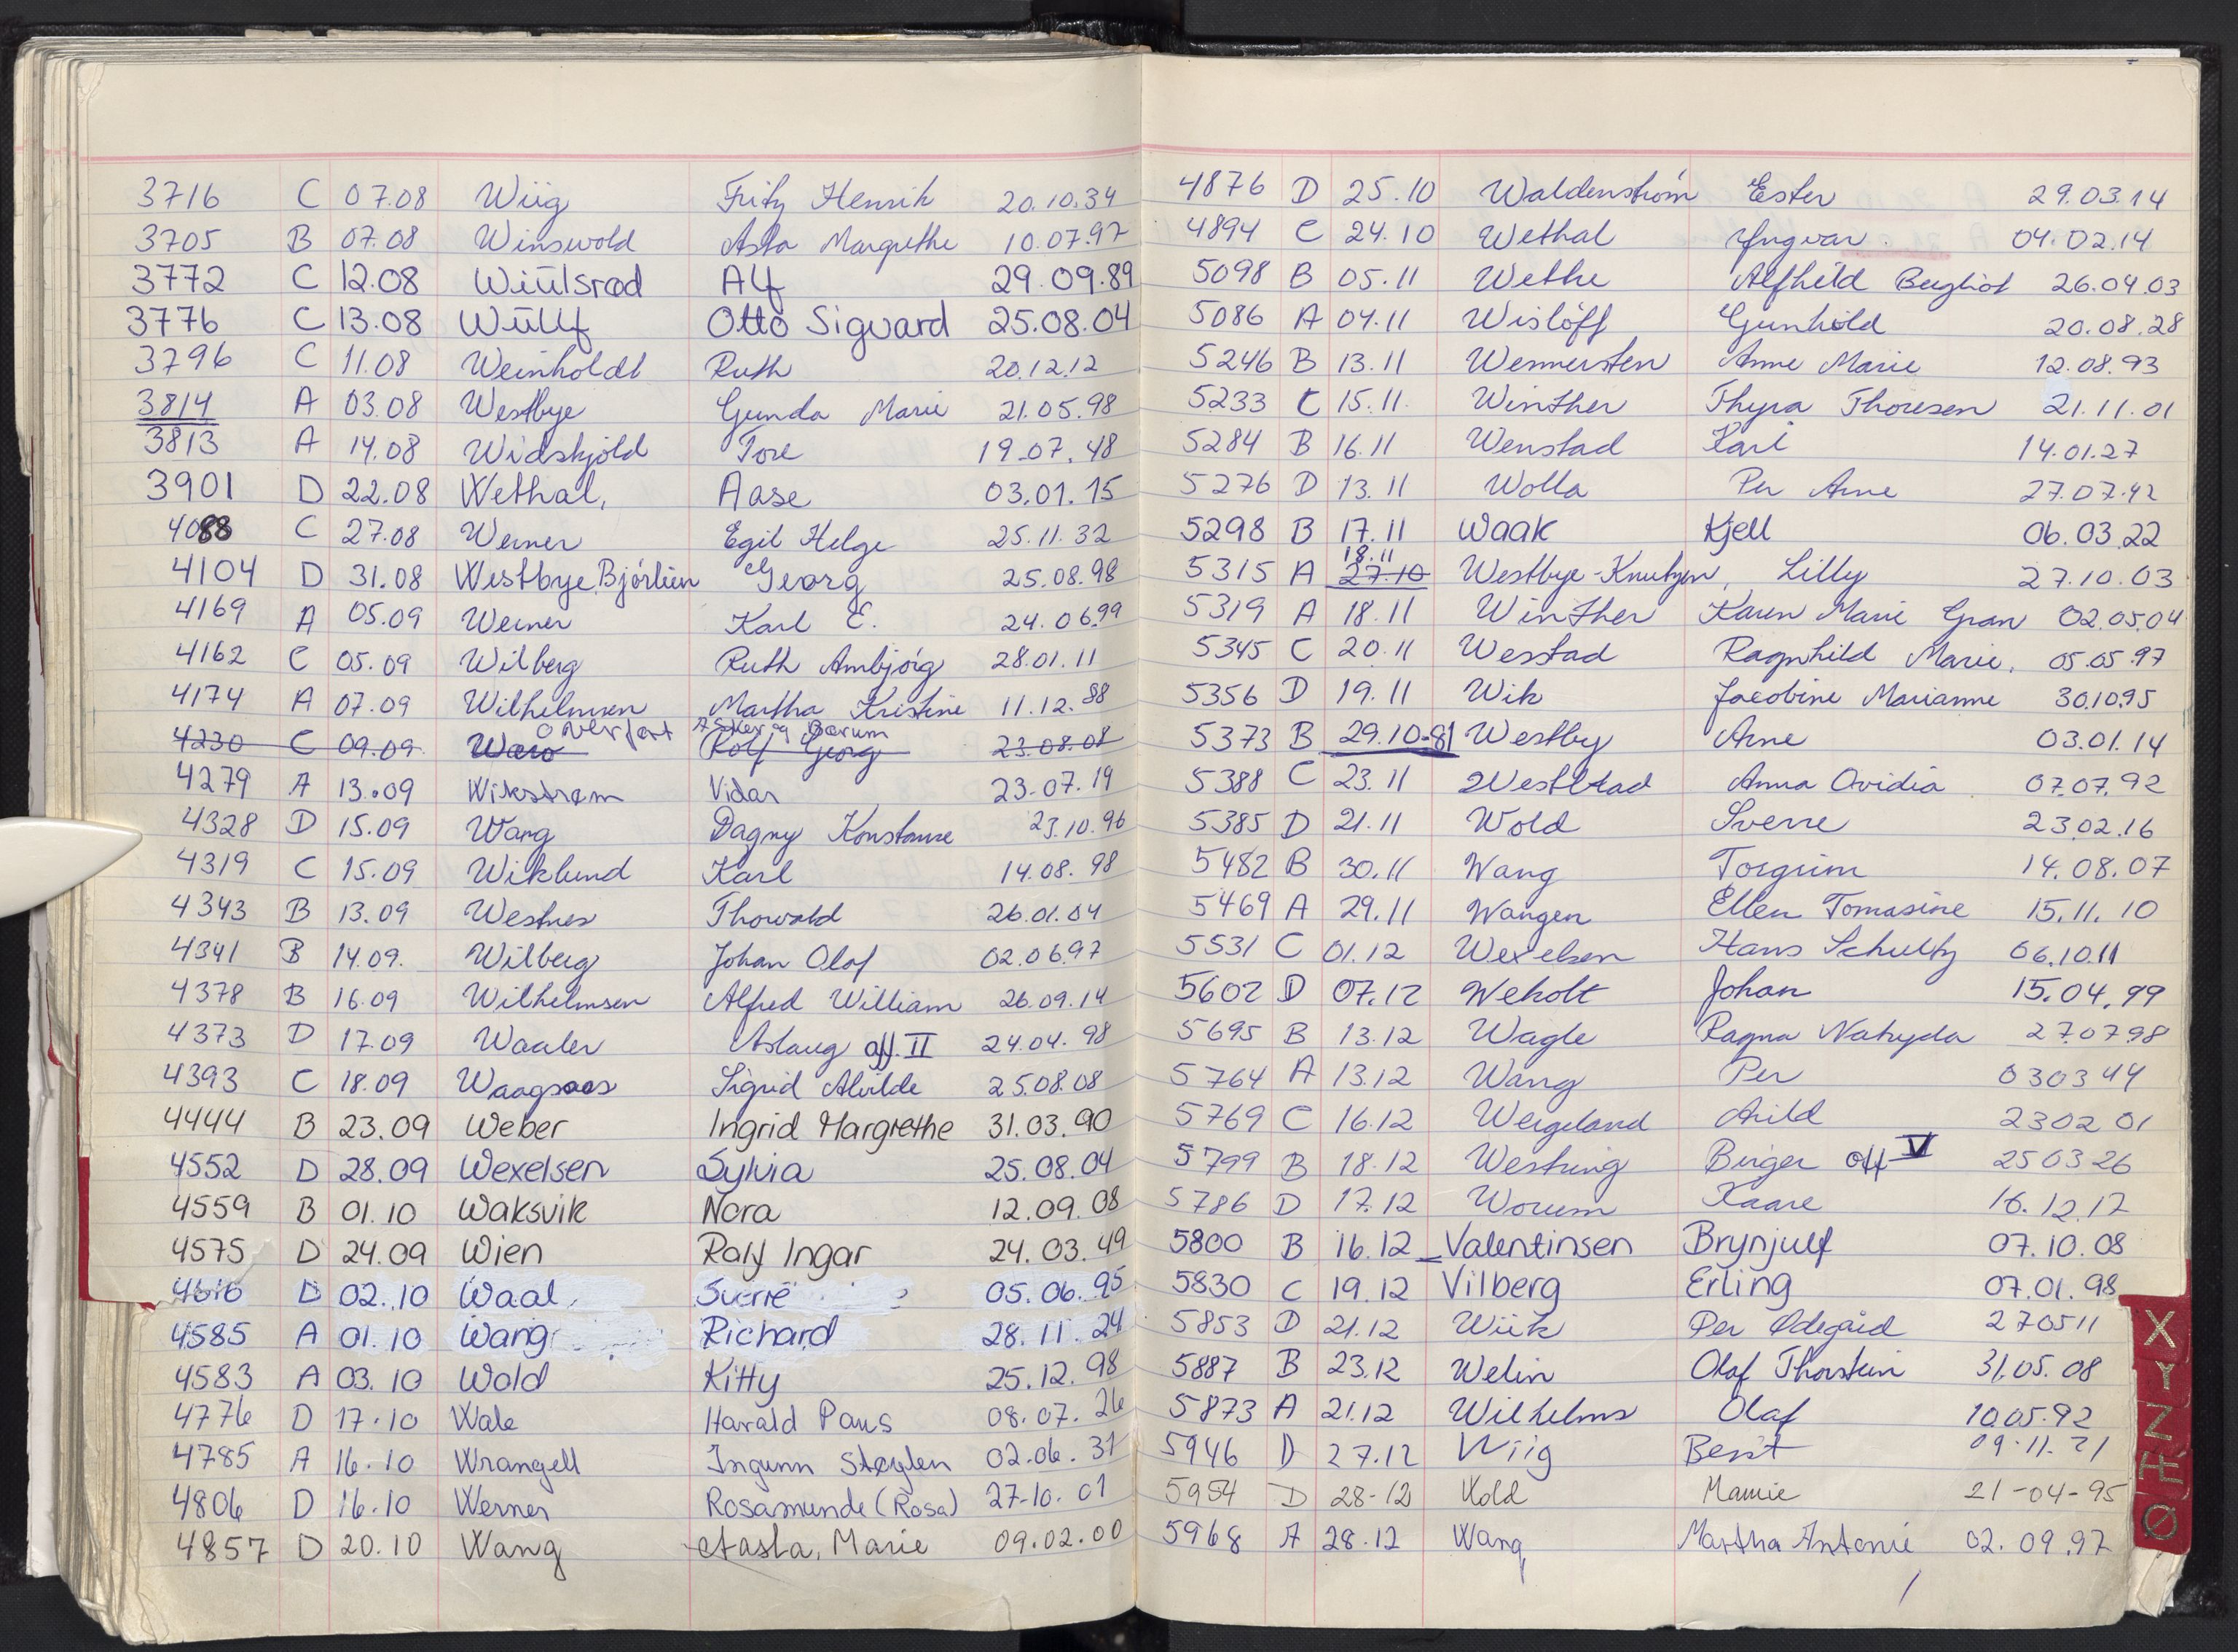 3716 C 07.08 Wiig Fritz Henrik 20.10.34
3705 B 07.08 Winswold Asta Margrethe 10.07.97
3772 C 12.08 Wiulsrød Alf 29.09.89
3776 C 13.08 Wüllf Otto Sigvard 25.08.04
3796 C 11.08 Weinholdt Ruth 20.12.12
3814 A 03.08 Westbye Gunda Marie 21.05.98
3813 A 14.08 Widskjold Tore 19.07.48
3901 D 22.08 Wethal, Aase 03.01.15
4088 C 27.08 Werner Egil Helge 25.11.32
4104 D 31.08 Westbye, Bjørlien Georg 25.08.98
4169 A 05.09 Werner Karl E. 24.06.99
4162 C 05.09 Wilberg Ruth Ambjörg 28.01.11
4174 A 07.09 Wilhelmsen Martha Kristine 11.12.88
Overført Asker og Bærum
4230 C 09.09 Rolf Georg 23.08.08
4279 A 13.09 Wikstrøm Vidar 23.07.19
4328 D 15.09 Wang Dagny Konstanse 23.10.96
4319 C 15.09 Wiklund Karl 14.08.98
4343 B 13.09 Westnes Thorvald 26.01.04
4341 B 14.09. Wilberg Johan Olaf 02.06.97
4378 B 16.09 Wilhelmsen Alfred William 26.09.14
4373 D 17.09 Waaler Aslaug off. II 24.04.98
4393 C 18.09 Waagsaas Sigrid Alvilde 25.08.08
4444 B 23.09 Weber Ingrid Margrethe 31.03.90
4552 D 28.09 Wexelsen Sylvia 25.08.04
4559 B 01.10 Waksvik Nora 12.09.08
4575 D 24.09 Wien Ralf Ingar 24.03.49
4616 D 02.10 Waal Sverre 05.06.95
4585 A 01.10 Wang Richard 28.11.24
4583 A 03.10 Wold Kitty 25.12.98
4776 D 17.10 Wale Harald Paus 08.07.26
4785 A 16.10 Wrangell Ingunn Støylen 02.06.31
4806 D 16.10 Werner Rosamunde (Rosa) 27-10.01
4857 D 20.10 Wang Aasta, Marie 09.02.00
4876 D 25.10 Waldenström Ester 29.03.14
4894 C 24.10 Wethal Yngvar. 04.02.14
5098 B 05.11 Wethe Alfhild Bergliot 26.04.03
5086 A 04.11 Wislöff Gunhild 20.08.28
5246 B 13.11 Wennersten Anne Marie 12.08.93
5233 C 15.11. Winther Thyra Thoresen 21.11.01
5284 B 16.11 Wenstad Kari 14.01.27
5276 D 13.11 Wolla Per Arne 27.07.42
5298 B 17.11 Waak Kjell 06.03.22
18.11
5315 A 27.10 Westbye-Knutzen, Lilly 27.10.03
5319 A 18.11 Winther Karen Marie Gran 02.05.04
5345 C 20.11 Westad Ragnhild Marie. 05.05.97
5356 D 19.11 Wik Jacobine Marianne 30.10.95
5373 B 29.10-81 Westby Arne 03.01.14
5388 C 23.11 Anna Ovidia 07.07.92
5385 D 21.11 Wold Sverre 23.02.16
5482 B 30.11 Wang Torgrim 14.08.07
5469 A 29.11 Wangen Ellen Tomasine 15.11.10
5531 C 01.12 Wexelsen Hans Schultz 06.10.11
5602 D 07.12 Weholt Johan 15.04.99
5695 B 13.12 Wagle Ragna Nathyda 270798
5764 A 13.12 Wang Per 030344
5769 C 16.12 Wergeland Arild 230201
5799 B 18.12 Westring Birger off V 250326
5786 D 17.12 Worum Kaare 16.12.17
5800 B 16.12 Valentinsen Brynjulf 07.10.08
5830 C 19.12 Vilberg Erling 07.01.98
5853 D 21.12 Wiik Per Ødegård 270511
5887 B 23.12 Welin Olaf Thorstein 31.05.08
5873 A 21.12 Wilhelms Olaf 10.05.92
5946 D 27.12 Wiig Berit 09.11.21
5954 D 28-12 Wold Mamie 21-04-95
5968 A 28.12 Wang Martha Antonie 02.09.97
X
Y
Z
Æ
Ø